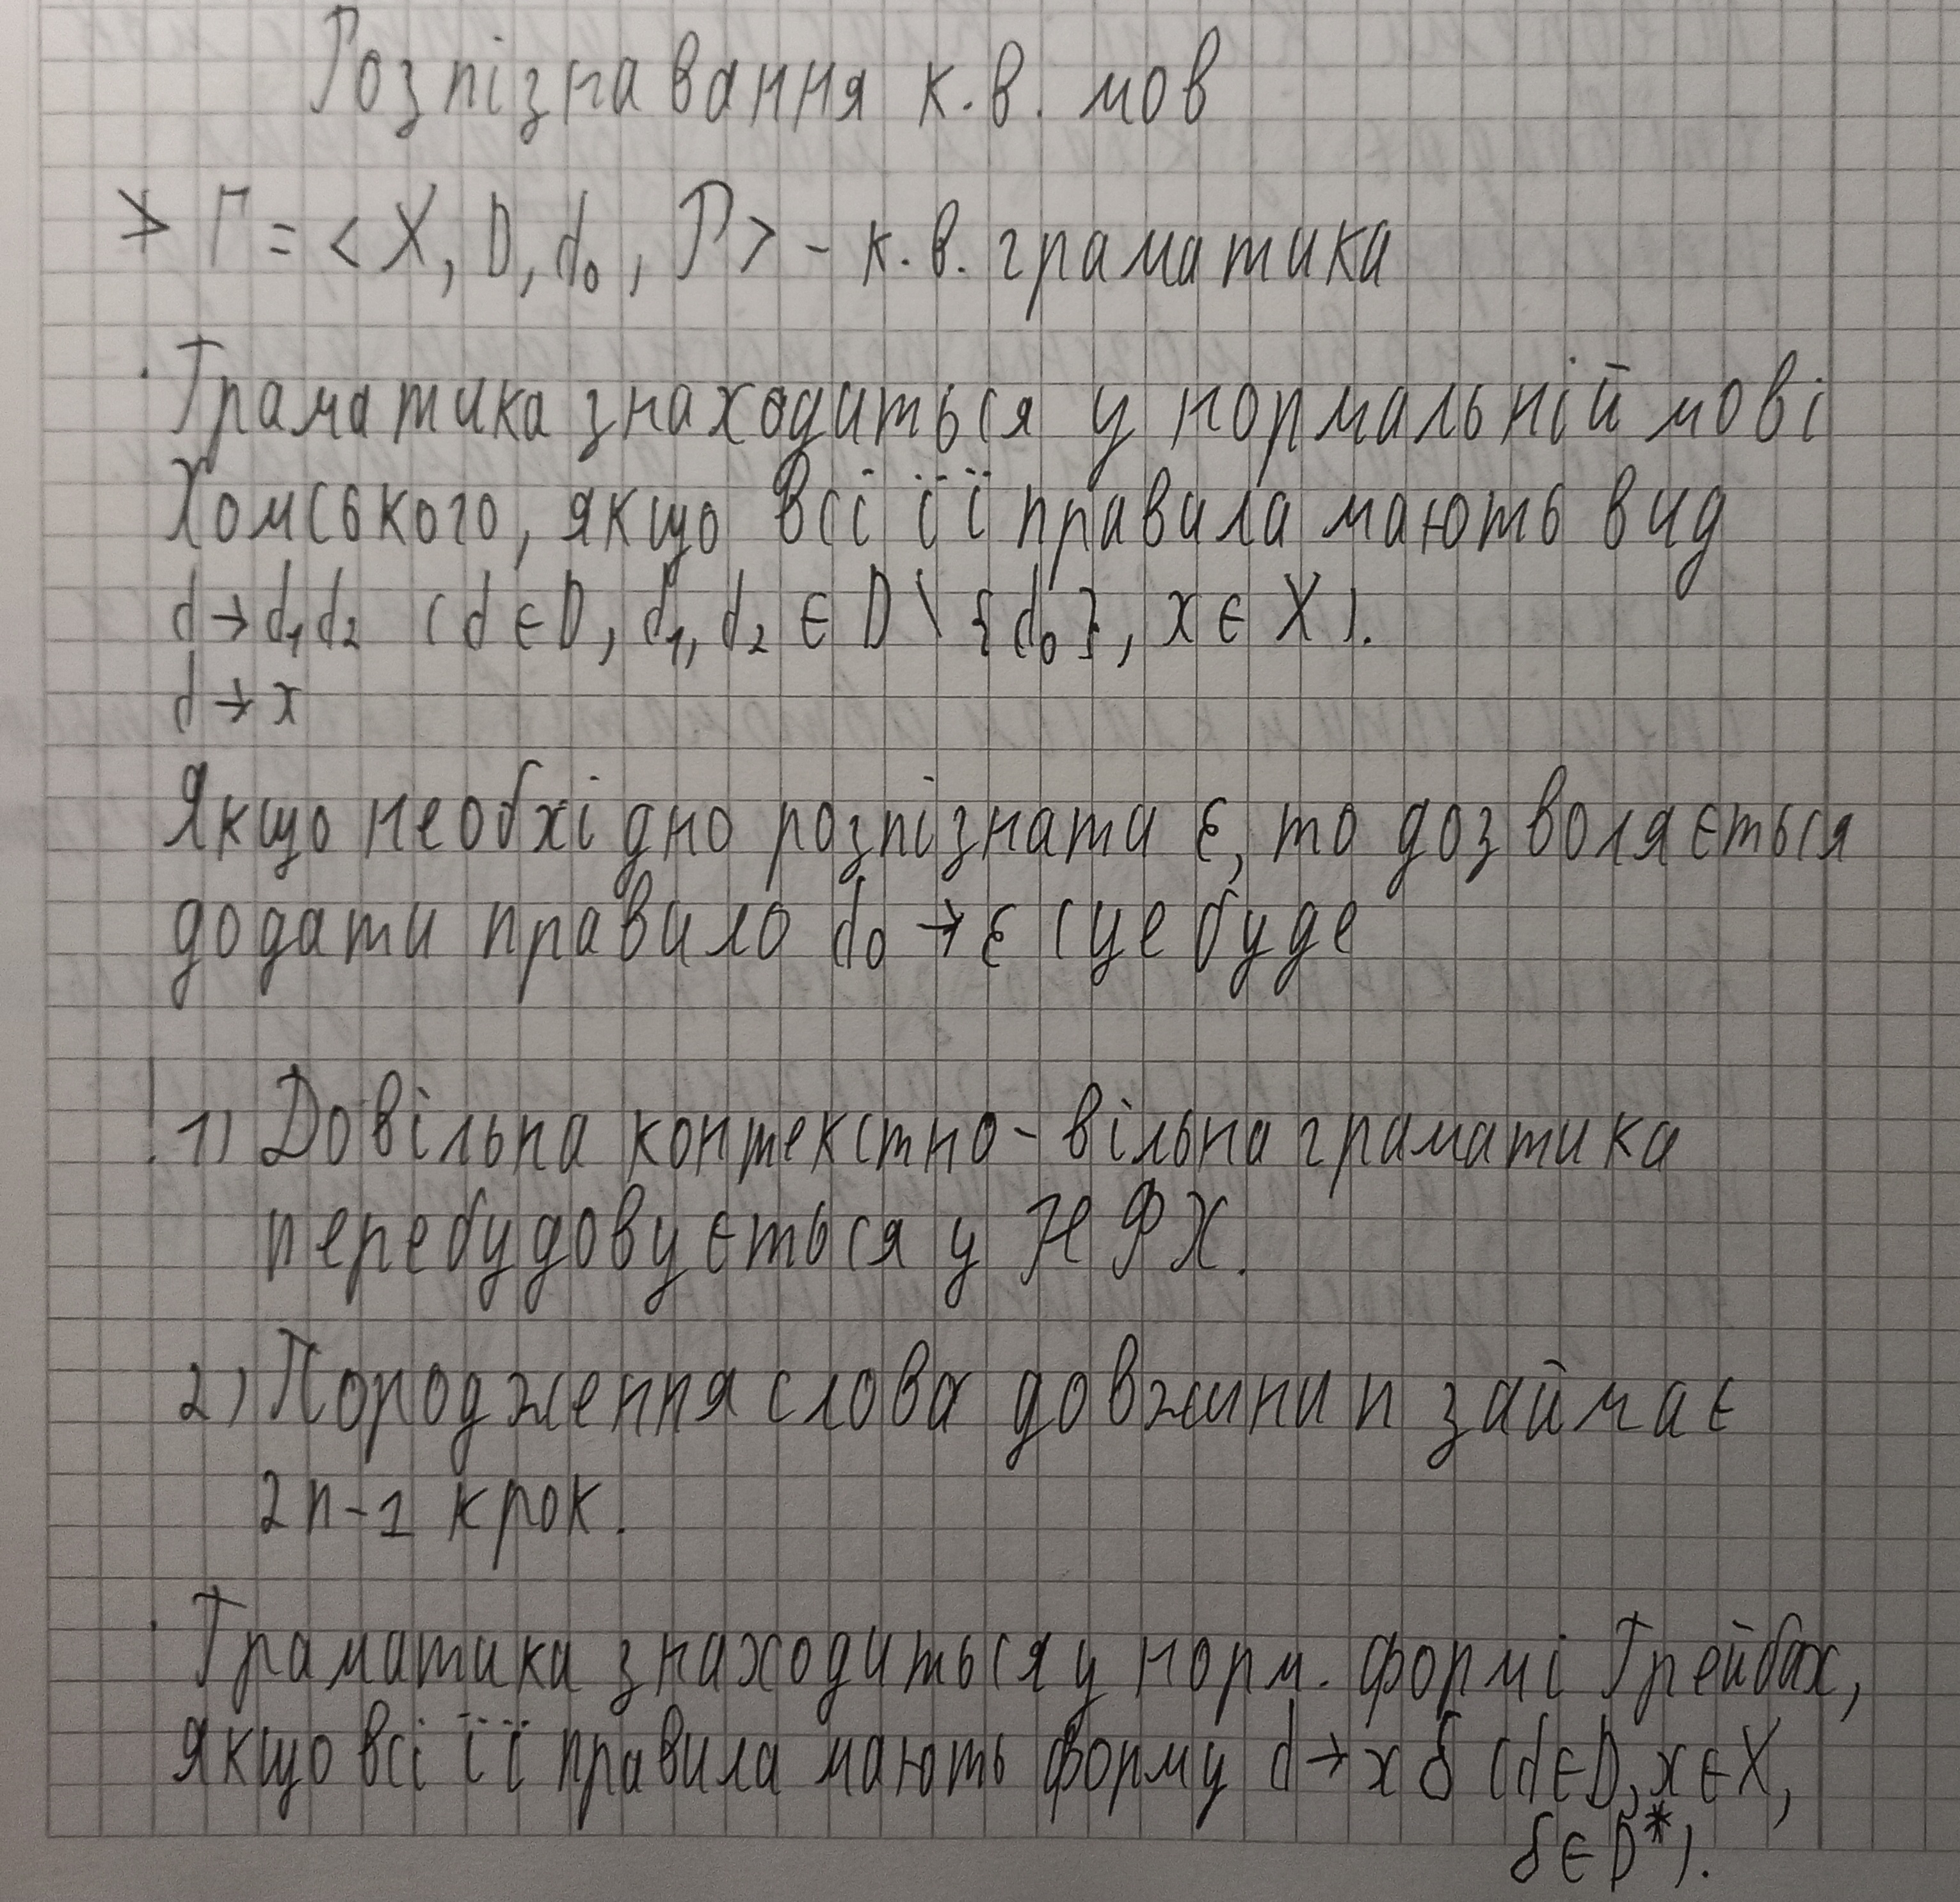 Розпізнавання к.в. мов
> Г = < X, D, d₀, P > - к.в. граматика
· Граматика знаходиться у нормальній мові
Хомського, якщо всі її правила мають вид
d → d₁d₂ (d ∈ D, d₁, d₂ ∈ D \ {d₀}, x ∈ X).
d → x
Якщо необхідно розпізнати ε, то дозволяється
додати правило d₀ → ε (це буде
! 1) Довільна контекстно-вільна граматика
перебудовується у НФХ.
2) Породження слова довжини n займає
2n-1 крок.
· Граматика знаходиться у норм. формі Грейбах,
якщо всі її правила мають форму d → xδ (d ∈ D, x ∈ X,
δ ∈ D*).